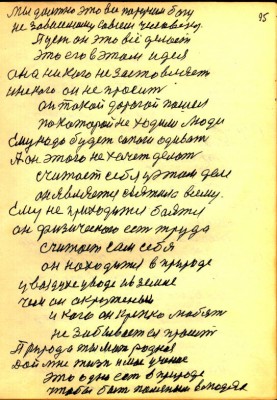 95
Мы должно это все поручим богу
не зависимому самим человеку
Пусть он это всё делает
это его в этом идея
она никого не заставляет
никого он не просит
он такой дорогой пошел
по которой не ходим люди
Ему надо будет сапоги одивать
А он этого не хочет делать
считает себя в этом деле
он является обяжно всему.
Ему не приходится бояться
он физического ест труда
считает сам себя
он находится в природе
у воздухе у воде и в земле
чем он окруженый
и кого он крепко любит
не забывается и просит
Природа ты мать родная
Дай мне жизнь учение
это одно есть в природе
чтобы быть